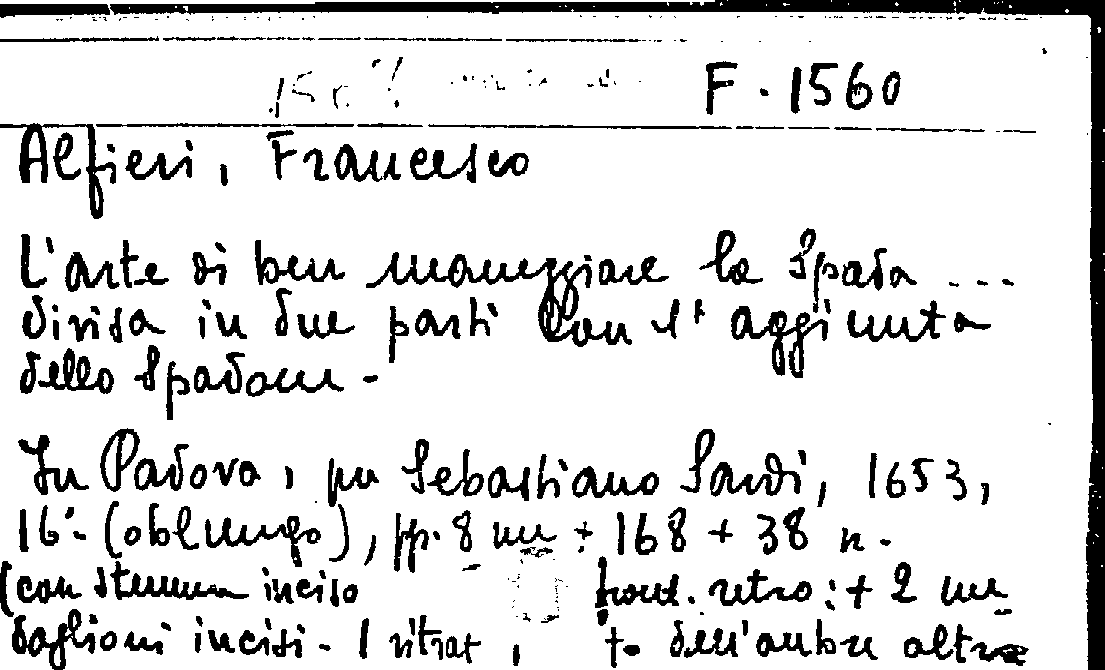 F. 1560
Alfieri, Francesco
L'arte di ben maneggiare la Spada ...
divisa in due parti Con l'aggiunta
dello Spadone -
In Padova, per Sebastiano Sardi, 1653,
16°- (oblungo), pp. 8 nn + 168 + 38 n.
(con stemma inciso front. retro: + 2 nn
taglioni incisi - 1 ritrat to dell'autore altre